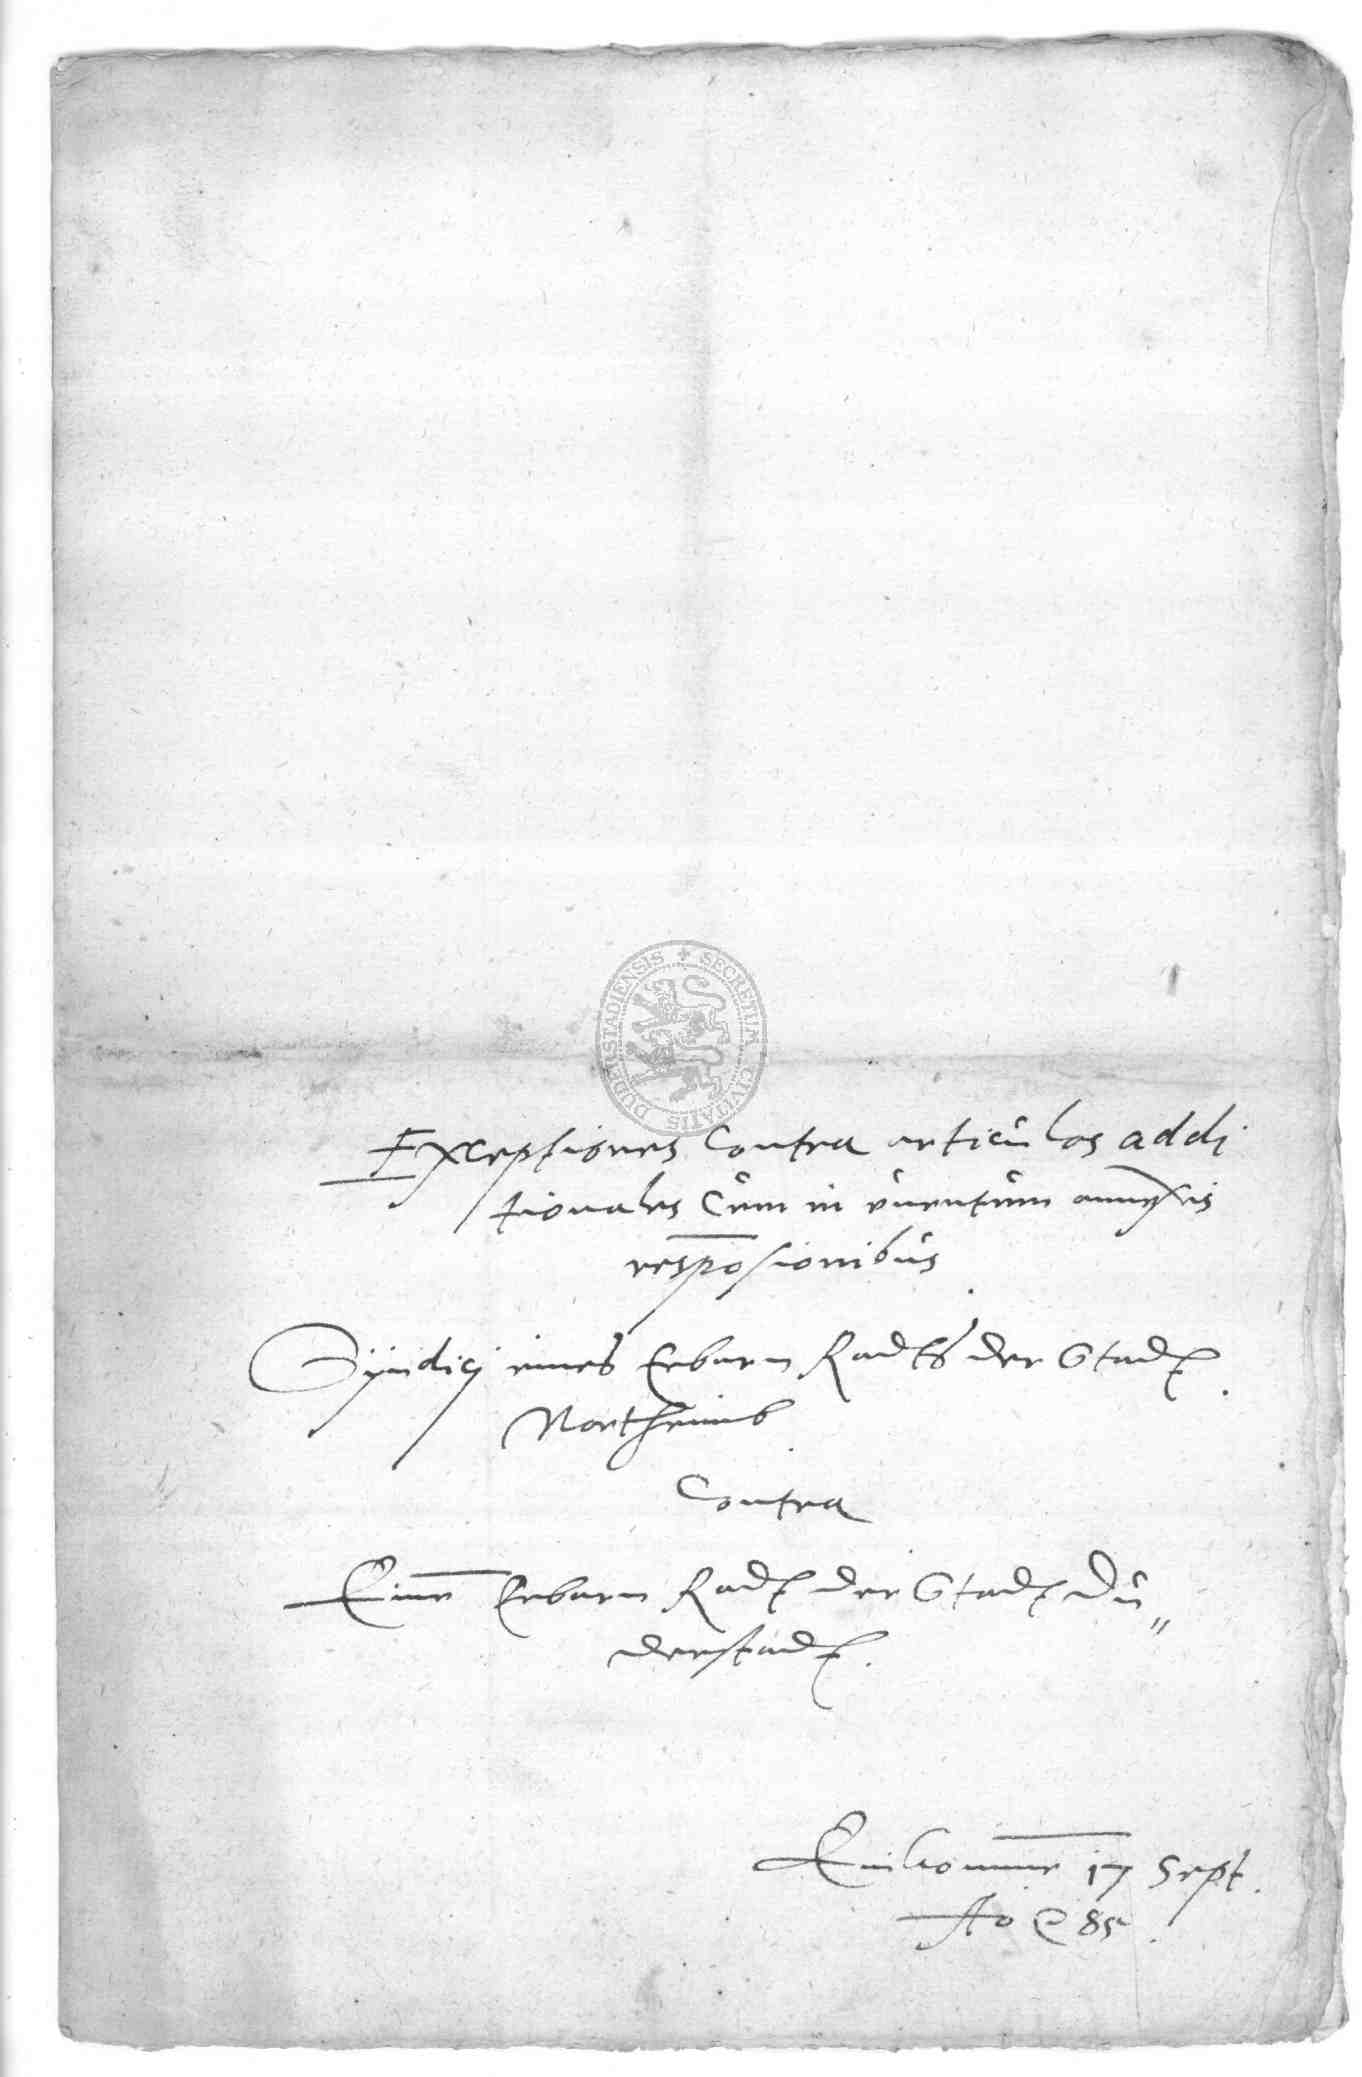 SECRETUM CIVITATIS DUDERSTADIENSIS
Exceptiones Contra articulos addi
tionales Cum in euentum annexis
resposionibus
Syndicj eines Erbarn Radts der Stadt
Northeimb
Contra
Eine Erbarn Radt der Stadt Du„
derstadt.
Einkomme 17 Sept.
Ao 85.